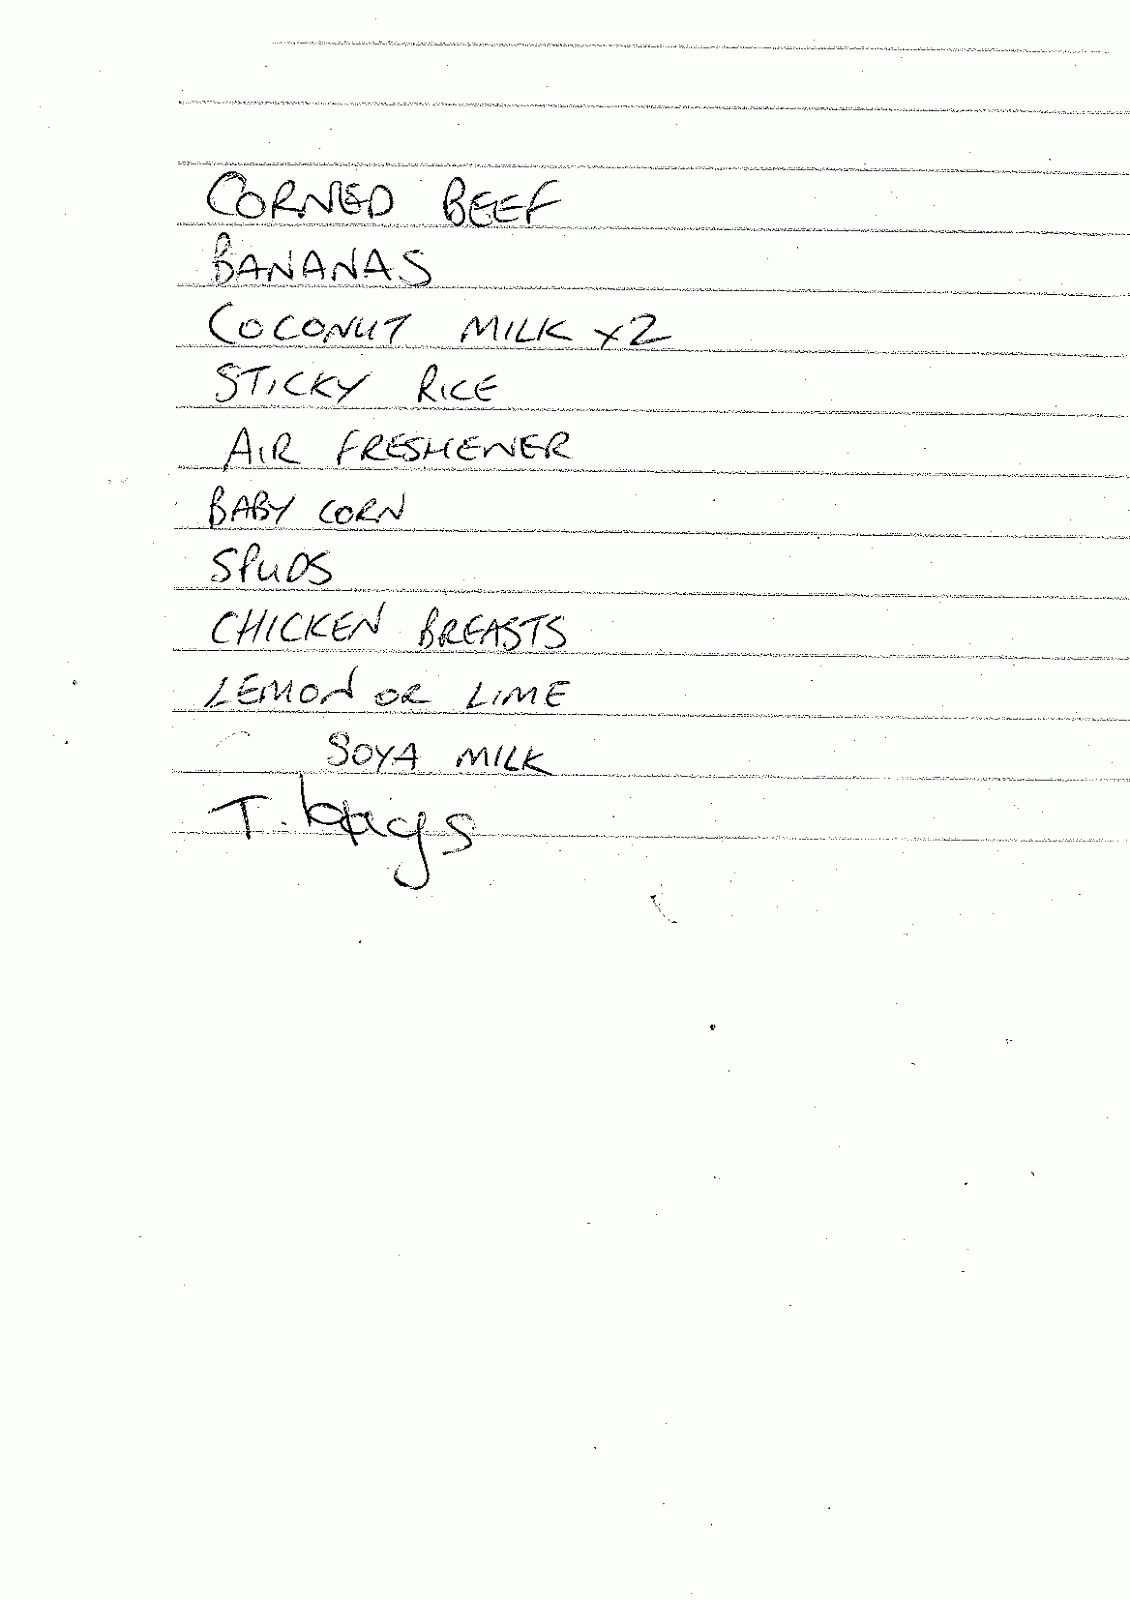 CORNED BEEF
BANANAS
COCONUT MILK x2
STICKY RICE
AIR FRESHENER
BABY CORN
SPUDS
CHICKEN BREASTS
LEMON OR LIME
SOYA MILK
T. bags